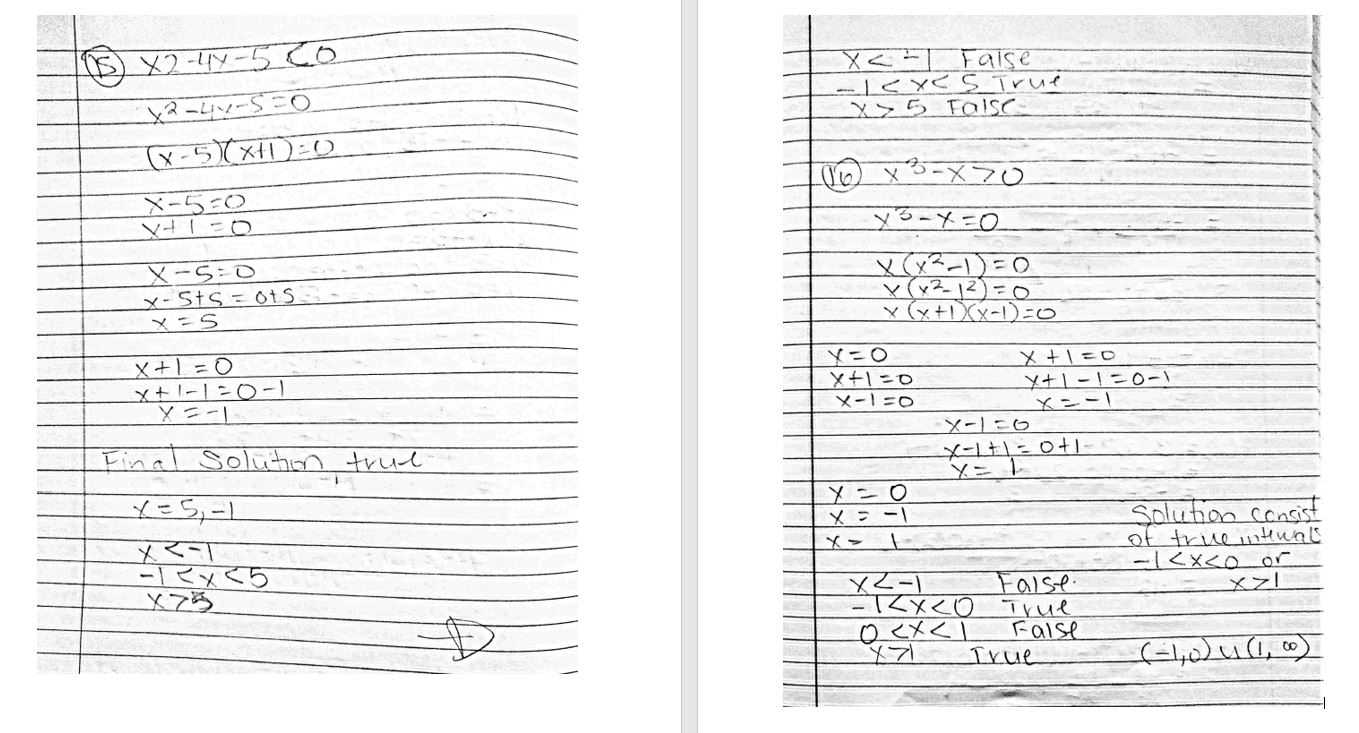 15 x2-4x-5<0
x²-4x-5=0
(x-5)(x+1)=0
x-5=0
x+1=0
x-5=0
x-5+5=0+5
x=5
x+1=0
x+1-1=0-1
x=-1
Final Solution true
x=5,-1
x<-1
-1<x<5
x>5
x<-1 False
-1<x<5 True
x>5 False
16 x³-x>0
x³-x=0
x(x²-1)=0
x(x²-1²)=0
x(x+1)(x-1)=0
x=0
x+1=0
x-1=0
x+1=0
x+1-1=0-1
x=-1
x-1=0
x-1+1=0+1
x=1
x=0
x=-1
x=1
x<-1 False
-1<x<0 True
0<x<1 False
x>1 True
Solution consist
of true intervals
-1<x<0 or
x>1
(-1,0)∪(1,∞)